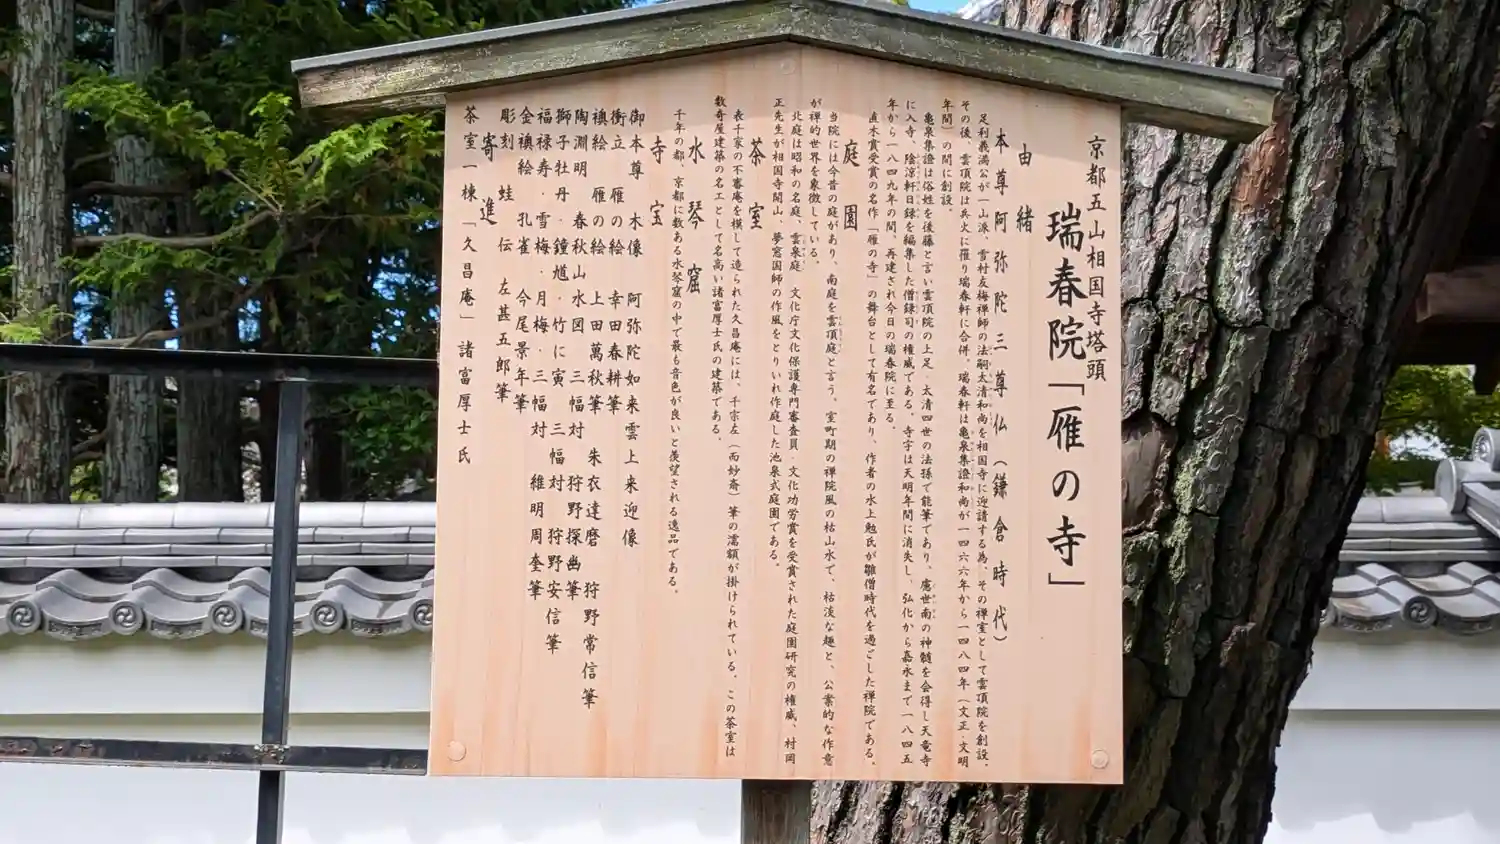 京都五山相国寺塔頭
瑞春院「雁の寺」
由緒
本尊阿弥陀三尊仏(鎌倉時代)
足利義満公が一山派、雪村友梅禅師の法嗣太清和尚を相国寺に迎請する為、その禅室として雲頂院を創設、
その後、雲頂院は兵火に罹り瑞春軒に合併。瑞春軒は亀泉集證和尚が一四六六年から一四八四年(文正・文明
年間)の間に創設。
亀泉集證は俗姓を後藤と言い雲頂院の上足、太清四世の法孫で能筆であり、虞世南の神髄を会得し天竜寺
に入寺、陰涼軒日録を編集した僧録司の権威である。寺宇は天明年間に消失し、弘化から嘉永まで一八四五
年から一八四九年の間、再建され今日の瑞春院に至る。
直木賞受賞の名作「雁の寺」の舞台として有名であり、作者の水上勉氏が雛僧時代を過ごした禅院である。
庭園
当院には今昔の庭があり、南庭を雲頂庭と言う。室町期の禅院風の枯山水で、枯淡な趣と、公案的な作意
が禅的世界を象徴している。
北庭は昭和の名庭、雲泉庭。文化庁文化保護専門審査員・文化功労賞を受賞された庭園研究の権威、村岡
正先生が相国寺開山、夢窓国師の作風をとりいれ作庭した池泉式庭園である。
茶室
表千家の不審庵を模して造られた久昌庵には、千宗左(而妙斎)筆の濡額が掛けられている。この茶室は
数奇屋建築の名工として名高い諸富厚士氏の建築である。
水琴窟
千年の都、京都に数ある水琴窟の中で最も音色が良いと羨望される逸品である。
寺宝
御本尊 木像 阿弥陀如来雲上来迎像
衝立 雁の絵 幸田春耕筆
襖絵 雁の絵 上田萬秋筆 朱衣達磨 狩野常信筆
陶淵明 春秋山水図 三幅対 狩野探幽筆
獅子牡丹・鐘馗・竹に寅 三幅対 狩野安信筆
福禄寿・雪梅・月梅・三幅対 維明周奎筆
金襖絵 孔雀 今尾景年筆
彫刻 蛙 伝 左甚五郎筆
寄進
茶室一棟「久昌庵」諸富厚士氏